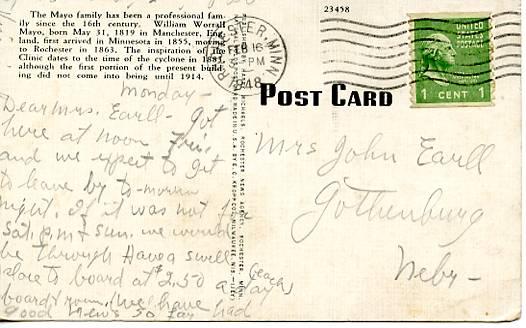 The Mayo family has been a professional fam-
ily since the 16th century. William Worrall
Mayo, born May 31, 1819 in Manchester, Eng-
land, first arrived in Minnesota in 1855, moving
to Rochester in 1863. The inspiration of the
Clinic dates to the time of the cyclone in 1883,
although the first portion of the present build-
ing did not come into being until 1914.
23458
ROCHESTER, MINN.
FEB 16
PM
1948
UNITED
STATES
POSTAGE
1 CENT 1
POST CARD
Monday-
Dear Mrs. Earll - Got
here at noon
and we expect to get
to leave by to-morrow
night. If it was not for
Sat. p.m & Sun. we would
be through Have a swell
place to board at $2.50 a day (each)
board & room. We have
good news so far had
Mrs John Earll
Gothenburg
Nebr-